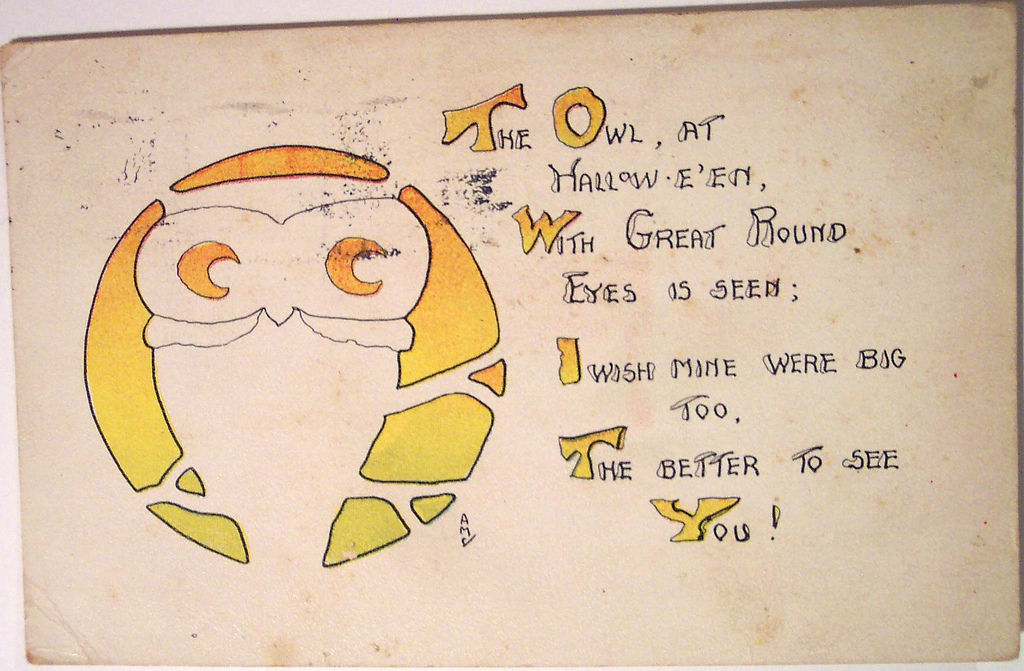 THE OWL, AT
HALLOW·E'EN,
WITH GREAT ROUND
EYES IS SEEN;
I WISH MINE WERE BIG
TOO,
THE BETTER TO SEE
YOU!